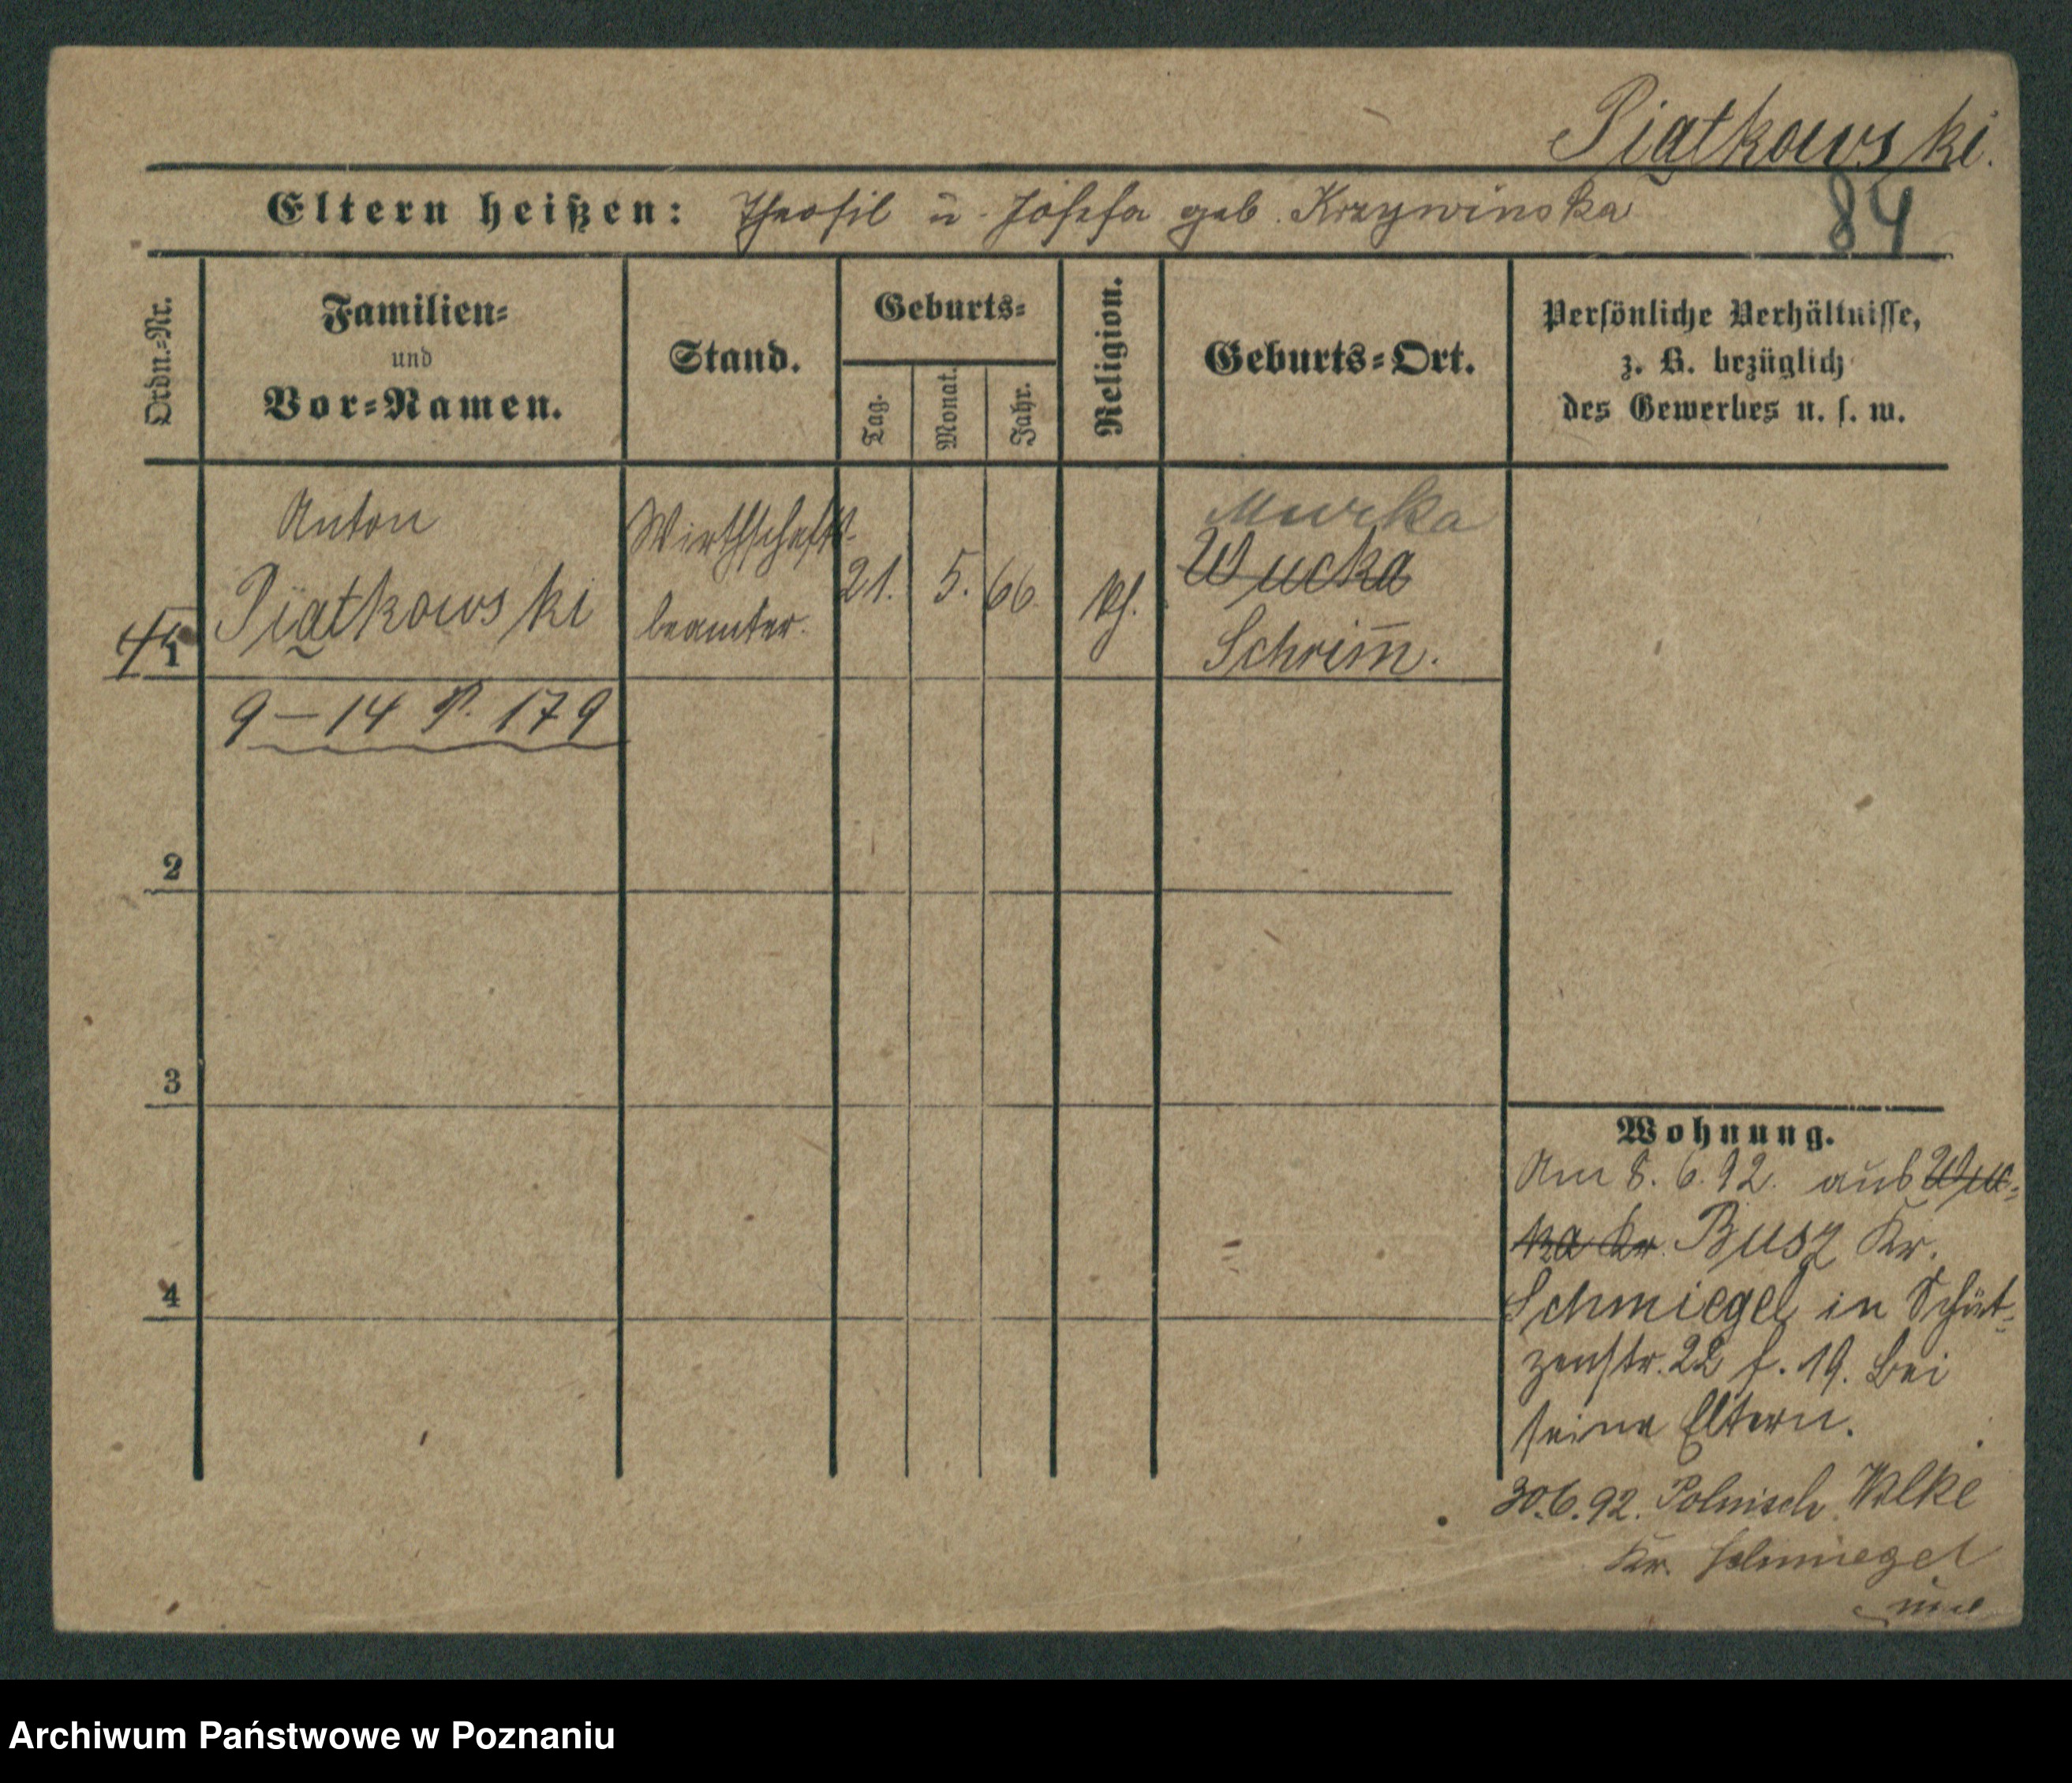 Piątkowski.
84
Eltern heißen: Theofil u. Josefa geb. Krzywinska
Ordn.-Nr.
Familien-
und
Vor-Namen.
Stand.
Geburts-
Tag.
Monat.
Jahr.
Religion.
Geburts-Ort.
Persönliche Verhältnisse,
z. B. bezüglich
des Gewerbes u. s. w.
1
Anton
Piątkowski
Wirthschafts-
beamter.
21.
5.
66
kf.
Murka
Wucka
Schrim̅.
9–14 P. 179
2
3
4
Wohnung.
Am 8. 6. 92. aus Wuc-
ka Kr. Busz Kr.
Schmiegel in Schüt-
zenstr. 22 f. 19. bei
seine Eltern.
30.6.92. Polnisch Wilke
Kr. Schmiegel
Archiwum Państwowe w Poznaniu